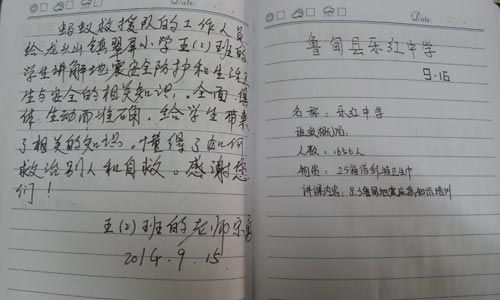 蚂蚁救援队的工作人员
给龙头山镇翠屏小学五(2)班的
学生讲解地震安全防护和生活卫
生与安全的相关知识。全面、具
体、生动而准确。给学生带来
了相关的知识。懂得了如何
救治别人和自救。感谢您
们!
五(2)班的老师
2014.9.15
Date
鲁甸县乐红中学
9.16
名称:乐红中学
人数:1656人
物资:25箱
讲课内容:8.3鲁甸地震应急知识培训